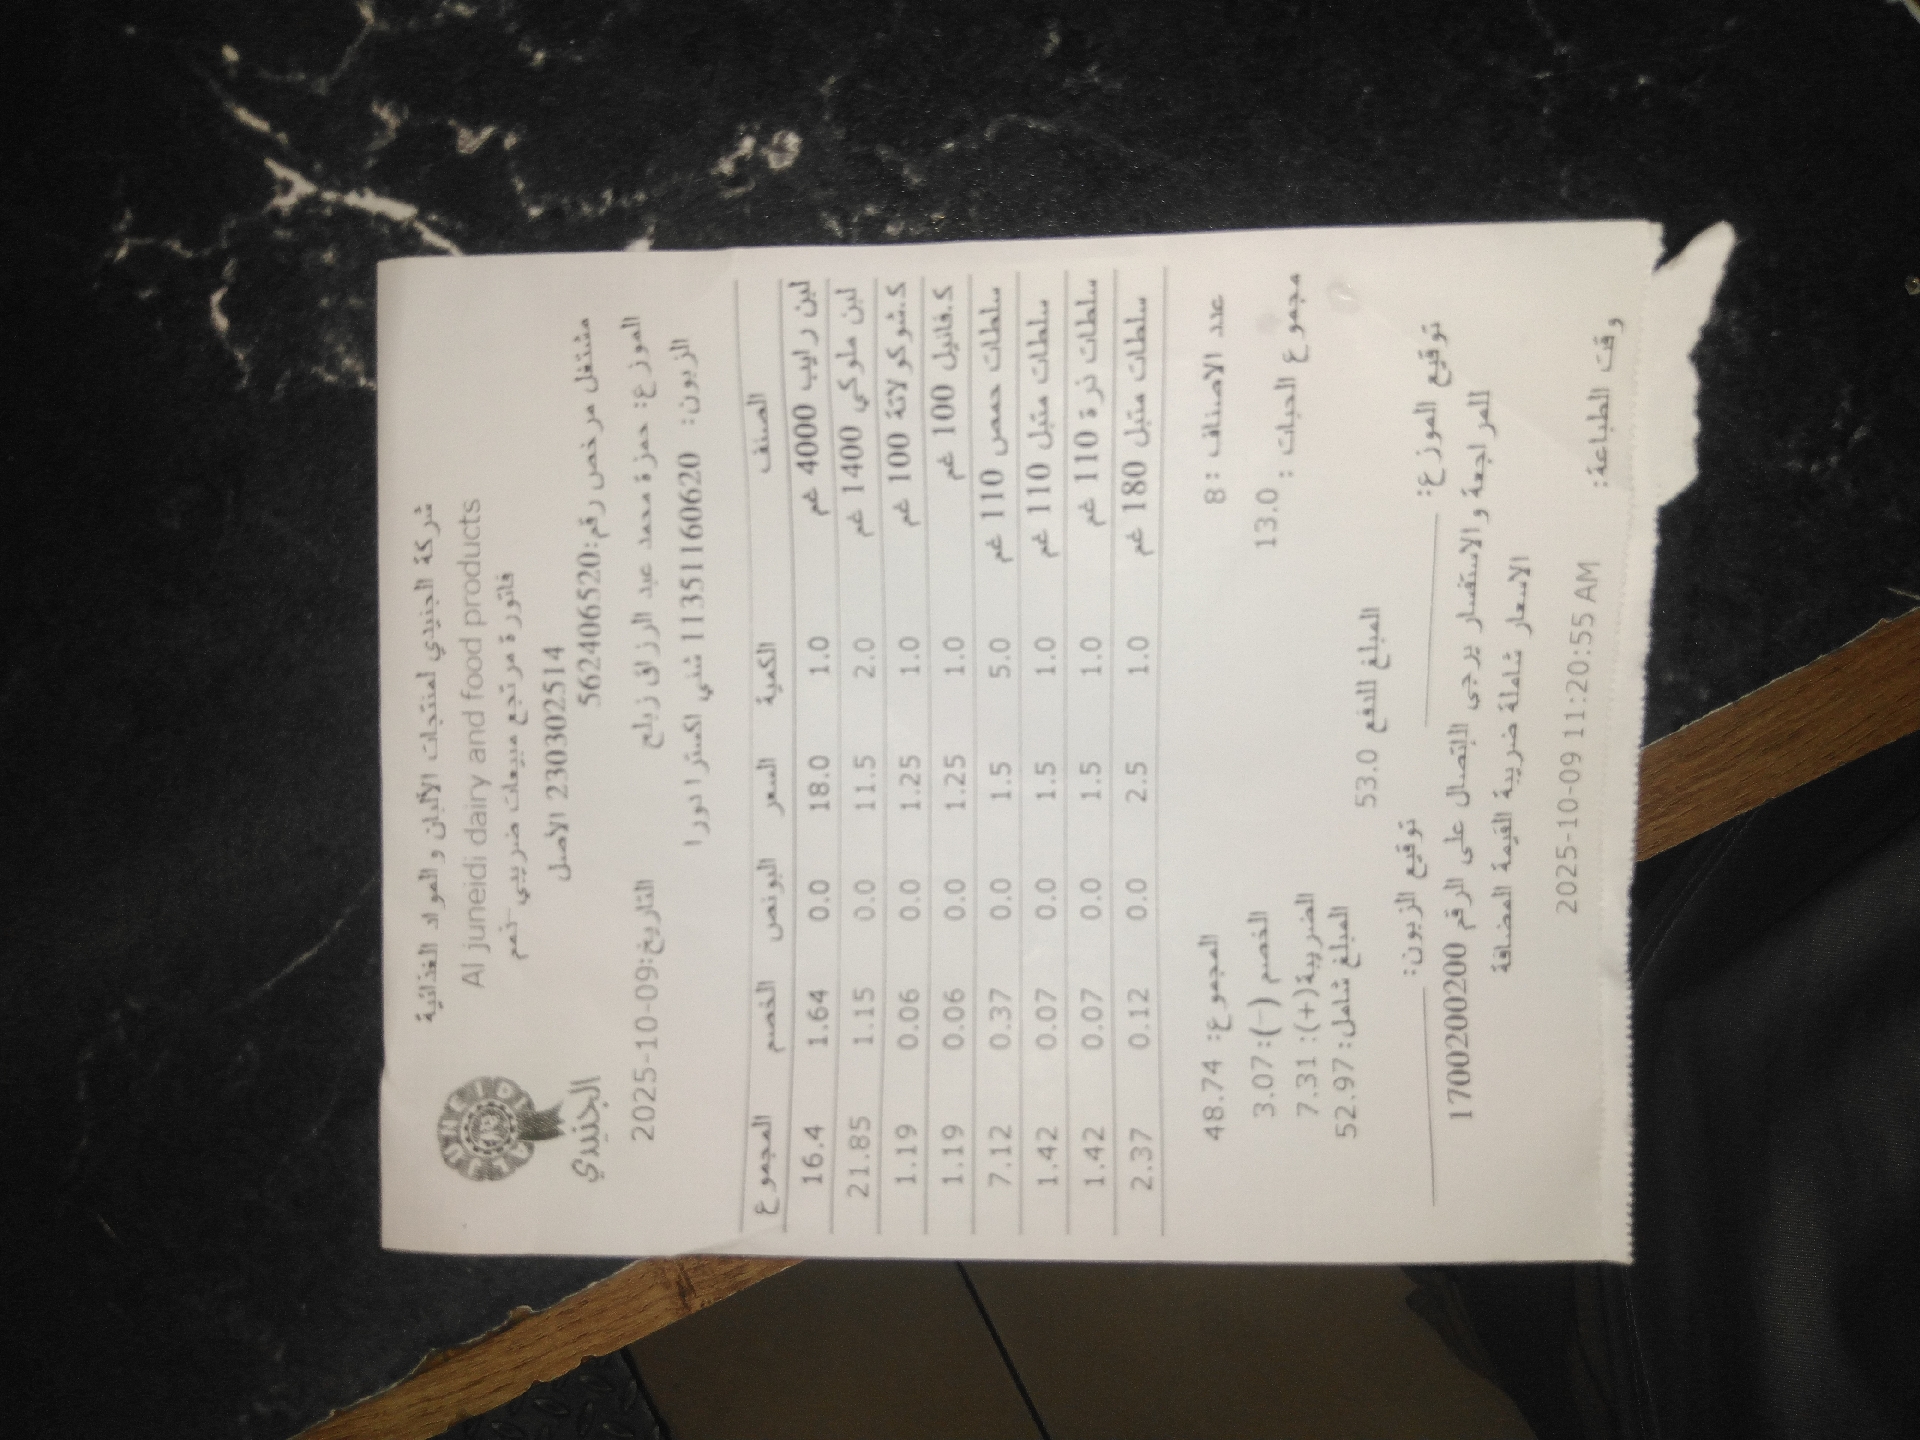 شركة الجنيدي لمنتجات الألبان و المواد الغذائية
Al juneidi dairy and food products
فاتورة مرتجع مبيعات ضريبي -ذمم
230302514 الأصل
مشتغل مرخص رقم:562406520
JUNEIDI
الجنيدي
الموزع: حمزة محمد عبد الرزاق زبلح
التاريخ:2025-10-09
الزبون: 1135116​0620 شني اكسترا دورا
الصنف الكمية السعر البونص الخصم المجموع
لبن رايب 4000 غم 1.0 18.0 0.0 1.64 16.4
لبن ملوكي 1400 غم 2.0 11.5 0.0 1.15 21.85
ك.شوكولاتة 100 غم 1.0 1.25 0.0 0.06 1.19
ك.فانيل 100 غم 1.0 1.25 0.0 0.06 1.19
سلطات حمص 110 غم 5.0 1.5 0.0 0.37 7.12
سلطات متبل 110 غم 1.0 1.5 0.0 0.07 1.42
سلطات ذرة 110 غم 1.0 1.5 0.0 0.07 1.42
سلطات متبل 180 غم 1.0 2.5 0.0 0.12 2.37
عدد الاصناف : 8 المجموع: 48.74
مجموع الحبات : 13.0 الخصم (-): 3.07
الضريبة(+): 7.31
المبلغ شامل: 52.97
المبلغ للدفع 53.0
توقيع الموزع: توقيع الزبون:
للمراجعة والاستفسار يرجى الاتصال على الرقم 1700200200
الاسعار شاملة ضريبة القيمة المضافة
وقت الطباعة: 2025-10-09 11:20:55 AM